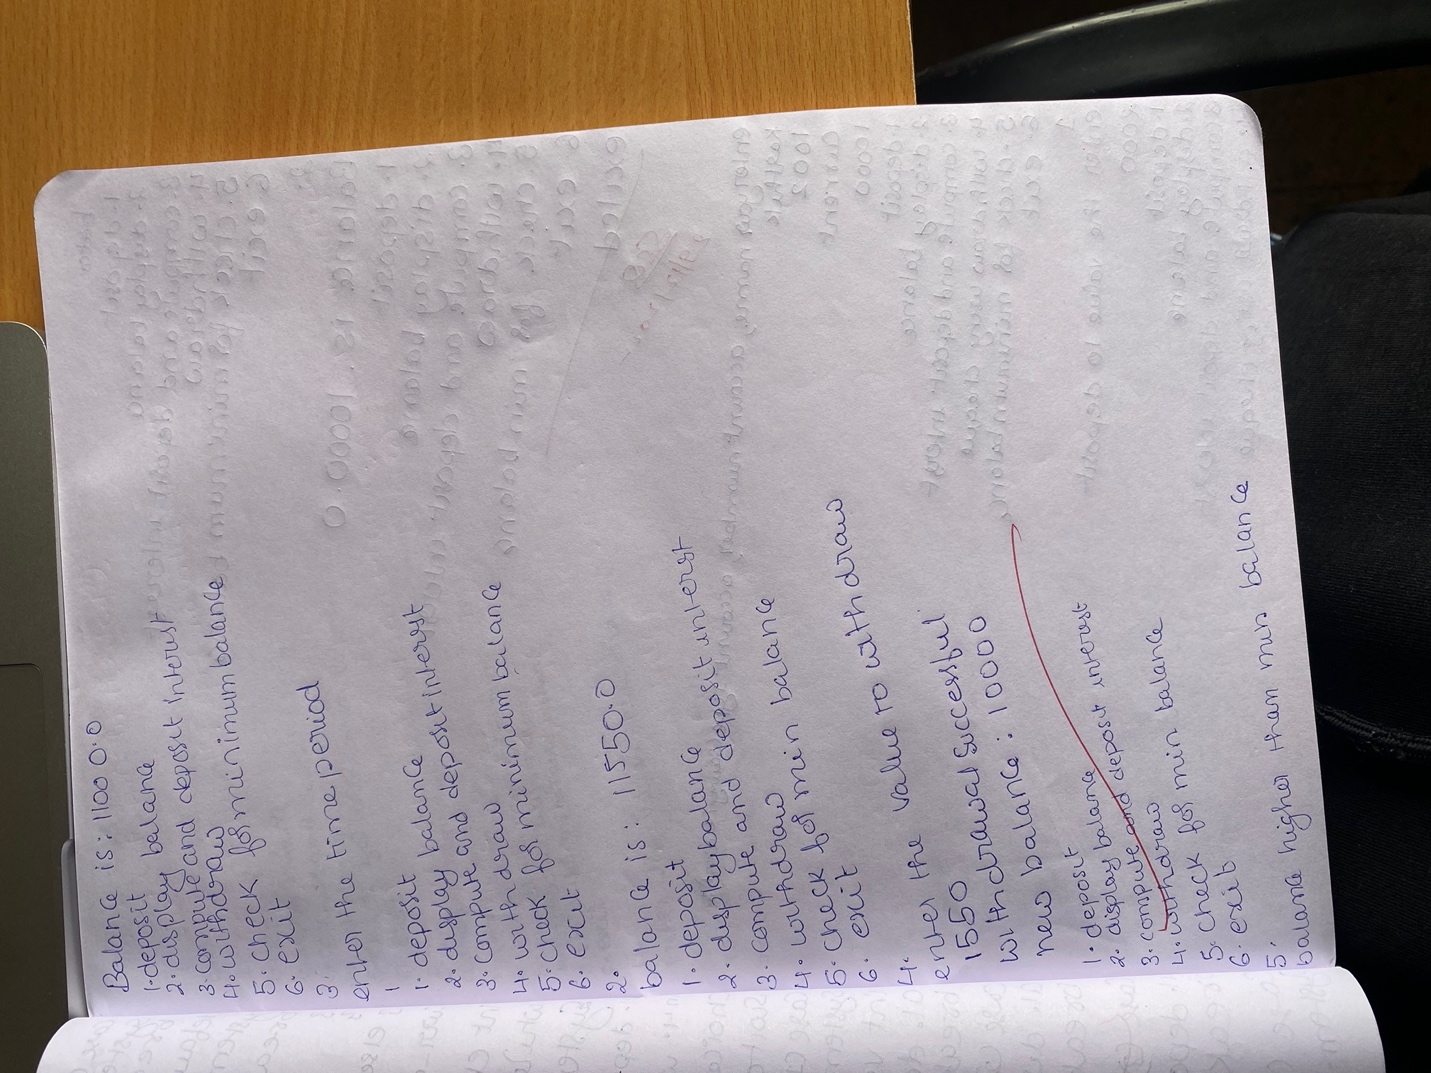 Balance is: 11000.0
1. deposit
2. display balance
3. compute and deposit interust
4. withdraw
5. check for minimum balance
6. exit
3.
enter the time period
1
1. deposit
2. display balance
3. compute and deposit interest
4. withdraw
5. check for minimum balance
6. exit
2.
balance is: 11550.0
1. deposit
2. display balance
3. compute and deposit interst
4. withdraw
5. check for min balance
6. exit
4.
enter the value to withdraw
1550
withdrawal successful
new balance: 10000
1. deposit
2. display balance
3. compute and deposit interest
4. withdraw
5. check for min balance
6. exit
5.
balance higher than min balance